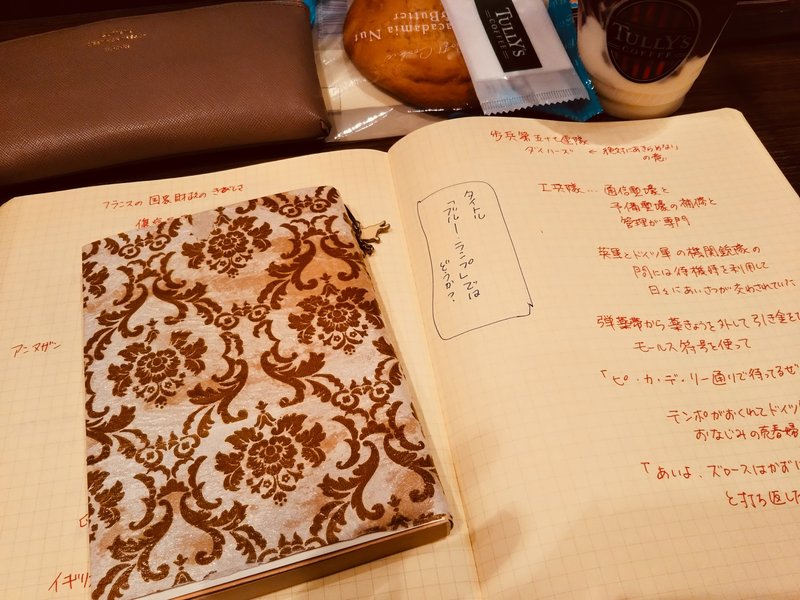 Macadamia Nut
Butter
TULLY'S
COFFEE
TULLY'S
COFFEE
フランスの国家財政の
アニメザン
イギリ
タイトル
「ブルー・ランプレでは
どうか?
歩兵第五十七連隊
ダイハーズ ← 絶対にあきらめない
の意
工兵隊…通信塹壕と
予備塹壕の補修と
管理が専門
英軍とドイツ軍の機関銃隊の
間には待機時を利用して
日々にあいさつが交わされていた
弾薬帯から薬きょうを外して引き金を
モールス符号を使って
「ピ・カ・デ・リー通りで待ってるぜ
テンポがおくれてドイツ
おなじみの売春婦
「あいよ、ズロースはかずに
と打ち返した